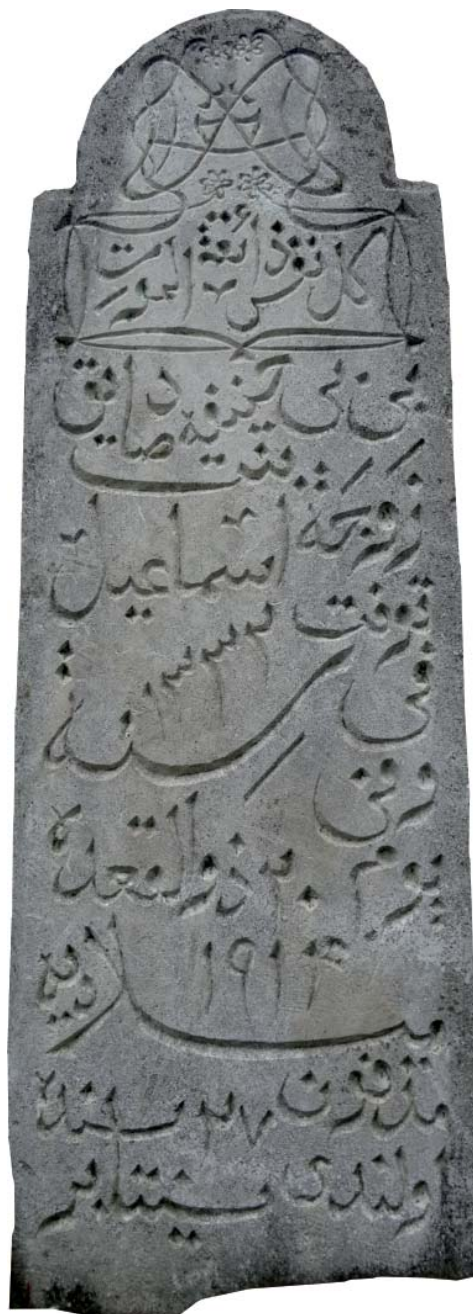 كل نفس ذائقة الموت
بى بى
صادق
بنت
زوجة
اسماعيل
توفت
فى سنة ١٣٣٢
وفى
يوم ٢٠ ذوالقعدة
١٩١٤
ميلادية
مدفون ٢٧ سنده
اولندى سينتابر